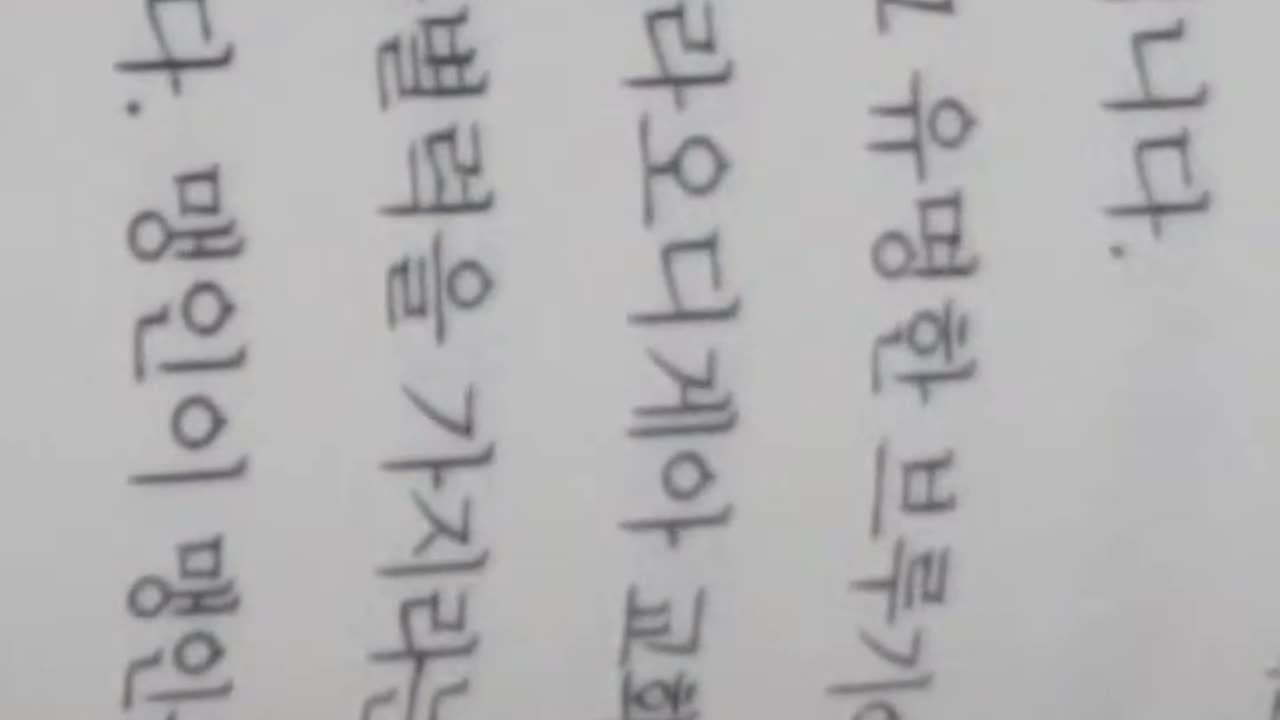 니다.
유명한 브루기
라오디게아 교회
별력을 가지라는
다. 맹인이 맹인